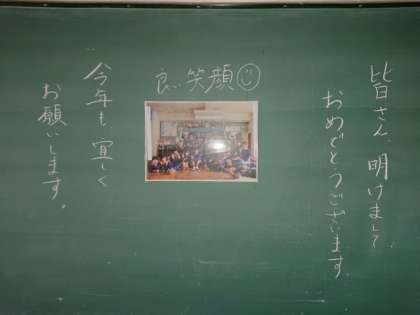 皆さん、明けまして
おめでとうございます。
良い笑顔
今年も、宜しく
お願いします。